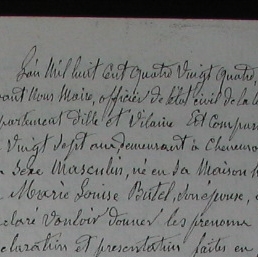 L'an Mil huit Cent quatre Vingt quatre,
vant Nous Maire, officier de l'état civil de la
partement d'Ille et Vilaine Est Comparu
Vingt sept ans demeurant à
Sexe Masculin, né en Sa Maison
Marie Louise son épouse,
claré Vouloir donner les prénoms
claration et présentation faites en